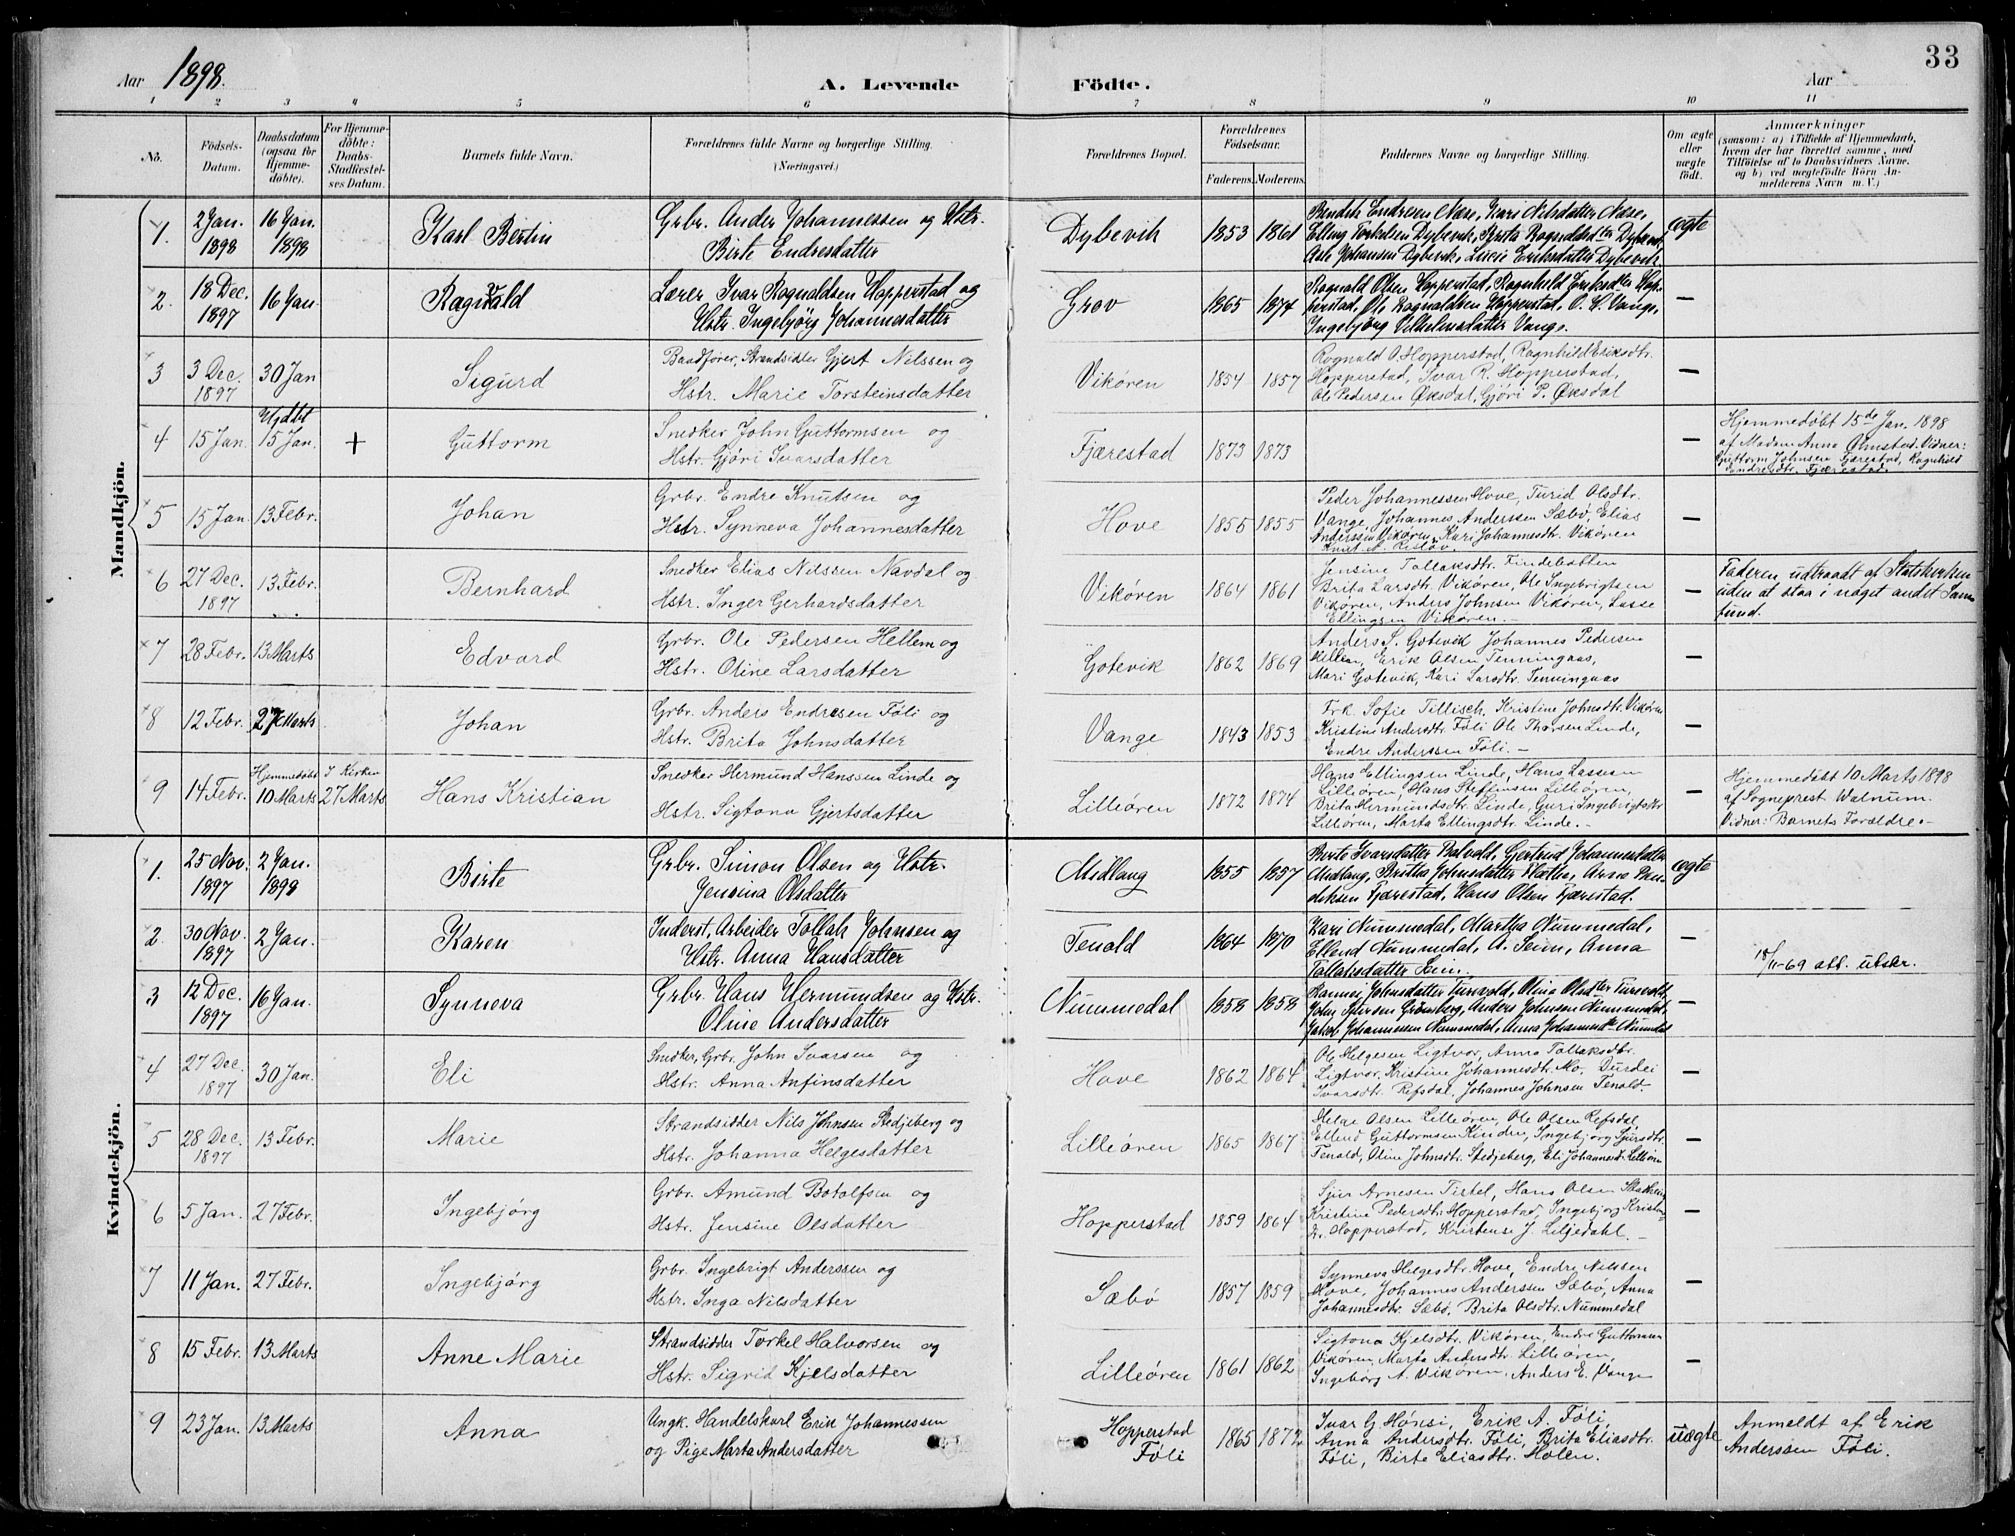 33
Aar 1898. A. Levende Födte. Aar
1 2 3 4 5 6 7 8 9 10 11
No.
Födsels-Datum.
Daabsdatum (ogsaa for Hjemmedöbte).
For Hjemmedöbte: Daabs-Stadfæstelses Datum.
Barnets fulde Navn.
Forældrenes fulde Navne og borgerlige Stilling. (Næringsvei.)
Forældrenes Bopæl.
Forældrenes Födselsaar.
Faderens. Moderens.
Faddernes Navne og borgerlige Stilling.
Om ægte eller uægte födt.
Anmærkninger
(saasom: a) i Tilfælde af Hjemmedaab,
hvem der har forrettet samme, med
Tilföielse af to Daabsvidners Navne,
og b) ved uægtefödte Börn Anmelderens Navn m. V.)
Mandkjön.
1. 2 Jan. 1898 16 Jan. 1898 Karl Bertin
Grbr. Ander Johannessen og Hstr.
Birte Endresdatter
Dybevik 1853 1861
Bendik Endresen Næse, Kari Nilsdatter Næse,
Elling Torkelsen Dybevik, Brita Ragnildsdtr Dybevik,
Asle Johansen Dybevik, Lucie Eriksdatter Dybevik
ægte
2. 18 Dec. 1897 16 Jan Ragnvald
Lærer Ivar Rognaldsen Hopperstad og
Hstr. Ingebjörg Johannesdatter
Grov 1865 1874
Rognald Olsen Hopperstad, Rognhild Eriksdtr Hopperstad,
Ole Rognaldsen Hopperstad, O. S. Vange,
Ingebjörg Vilhelmsdatter Vange.
—
3 3 Dec. 1897 30 Jan Sigurd
Baadfører, Strandsidder Gjert Nilssen og
Hstr. Marie Torsteinsdatter
Vikören 1854 1857
Rognald O. Hopperstad, Ragnhild Eriksdtr.
Hopperstad, Ivar R. Hopperstad,
Ole Pedersen Øksdal, Gjöri P. Øksdal
—
4 15 Jan. Hjdbt 15 Jan. + Guttorm
Snedker John Guttormsen og
Hstr. Gjöri Ivarsdatter
Fjærestad 1873 1873
—
Hjemmedöbt 15de Jan. 1898
af Madam Anna Olmstad. Vidner:
Guttorm Johnsen Fjærestad, Ragnhild
Endresdtr. Fjærestad.
5 15 Jan 13 Febr. Johan
Grbr. Endre Knutsen og
Hstr. Synneva Johannesdatter
Hove 1855 1855
Peder Johannessen Hove, Turid Olsdtr.
Vange, Johannes Anderssen Sæbö, Elias
Anderssen Vikören, Kari Johannesdtr. Vikören
Knut A.
—
6 27 Dec. 1897 13 Febr. Bernhard
Snedker Elias Nilssen Navdal og
Hstr. Inger Gerhardsdatter
Vikören 1864 1861
Jensine Tollaksdtr. Findebotten
Brita Larsdtr. Vikören, Ole Ingebrigtsen
Vikören, Anders Johnsen Vikören, Lasse
Ellingsen Vikören.
—
Faderen udtraadt af Statskirken
uden at staa i noget andet Samfund.
7 28 Febr. 13 Marts Edvard
Grbr. Ole Pedersen Hellem og
Hstr. Oline Larsdatter
Gotevik 1862 1869
Anders S. Gotevik Johannes Pedersen
Hellem, Erik Olsen Tenningaas,
Mari Gotevik, Kari Larsdtr. Tenningaas
—
8 12 Febr. 27 Marts Johan
Grbr. Anders Endresen Föli og
Hstr. Brita Johnsdatter
Vange 1843 1853
Frk. Sofie Tillisch, Kristine Johnsdtr. Vikören
Kristine Andersdtr. Föli Ole Thorsen Linde,
Endre Anderssen Föli.
—
9 14 Febr. Hjemmedöbt 10 Marts I Kirken 27 Marts Hans Kristian
Snedker Hermund Hanssen Linde og
Hstr. Sigtona Gjertsdatter
Lilleören 1872 1874
Hans Ellingsen Linde, Hans Lassesen
Lilleören, Hans Steffensen Lilleören,
Brita Hermundsdtr. Linde, Guri Ingebrigtsdtr
Lilleören, Marta Ellingsdtr. Linde.
—
Hjemmedöbt 10 Marts 1898
af Sogneprest Walnum.
Vidner: Barnets Forældre.
Kvindekjön.
1. 25 Nov. 1897 2 Jan. 1898 Birte
Grbr. Simon Olsen og Hstr.
Jensina Olsdatter
Midlang 1855 1857
Birte Ivarsdatter Bolvold, Gertrud Johannesdatter
Midlang, Britha Johnsdatter
Fjærestad, Hans Olsen Fjærestad.
ægte
2. 30 Nov. 1897 2 Jan. Karen
Inderst, Arbeider Tollak Johnsen og
Hstr. Anna Hansdatter
Tenold 1864 1870
Kari Nummedal, Martha Nummedal,
Ellend Nummedal, A. Seim, Anna
Tollaksdatter Seim.
—
18/11-69 att. utskr.
3 12 Dec. 1897 16 Jan. Synneva
Grbr. Hans Hermundsen og Hstr.
Oline Andersdatter
Nummedal 1858 1858
Rannei Johnsdatter Turvold, Olina Olsdtr Turvold,
John Grönsberg, Anders Johnsen Nummedal,
Jakob Johannessen Nummedal, Anna Johannesdtr Nummedal
—
4 27 Dec. 1897 30 Jan. Eli
Snedker, Grbr. John Ivarsen og
Hstr. Anna Anfinsdatter
Hove 1862 1864
Ole Helgesen Ligtvor, Anna Tollaksdtr.
Ligtvor, Kristine Johannesdtr. Mo. Durdei
Ivarsdtr. Refsdal, Johannes Johnsen Tenold.
—
5 28 Dec. 1897 13 Febr. Marie
Strandsidder Nils Johnsen Stedjeberg og
Hstr. Johanna Helgesdatter
Lilleören 1865 1867
Helge Olsen Lilleören, Ole Olsen Refsdal,
Ellend Guttormsen Kinden, Ingebjörg Sjursdtr.
Tenold, Oline Johnsdtr. Stedjeberg, Eli Johannesdtr Lilleören
—
6 5 Jan. 27 Febr. Ingebjörg
Grbr. Amund Botolfsen og
Hstr. Jensine Olsdatter
Hopperstad 1859 1864
Sjur Arnesen Tistel, Hans Olsen Stadheim
Kristine Pedersdtr. Hopperstad, Ingebjorg
Hopperstad, Kristense J. Liljedahl.
—
7 11 Jan. 27 Febr. Ingebjörg
Grbr. Ingebrigt Anderssen og
Hstr. Inga Nilsdatter
Sæbö 1857 1859
Synneva Helgesdtr. Hove, Endre Nilssen
Hove, Johannes Anderssen Sæbö, Anna
Johannesdtr. Sæbö, Brita Olsdtr. Nummedal
—
8 15 Febr. 13 Marts Anne Marie
Strandsidder Torkel Halvorsen og
Hstr. Sigrid Kjelsdatter
Lilleören 1861 1862
Sigtona Kjelsdtr. Vikören, Endre Guttormsen
Vikören, Marta Andersdtr. Lilleören,
Ingeborg A. Vikören, Anders E. Vange
—
9 23 Jan. 13 Marts Anna
Ungk. Handelskarl Erik Johannessen
og Pige Marta Andersdatter
Hopperstad
Föli
1865 1872
Ivar G. Hönsi, Erik A. Föli,
Anna Andersdtr. Föli, Brita Eliasdtr.
Föli, Birte Eliasdtr. Holen.
uægte
Anmeldt af Erik
Anderssen Föli.